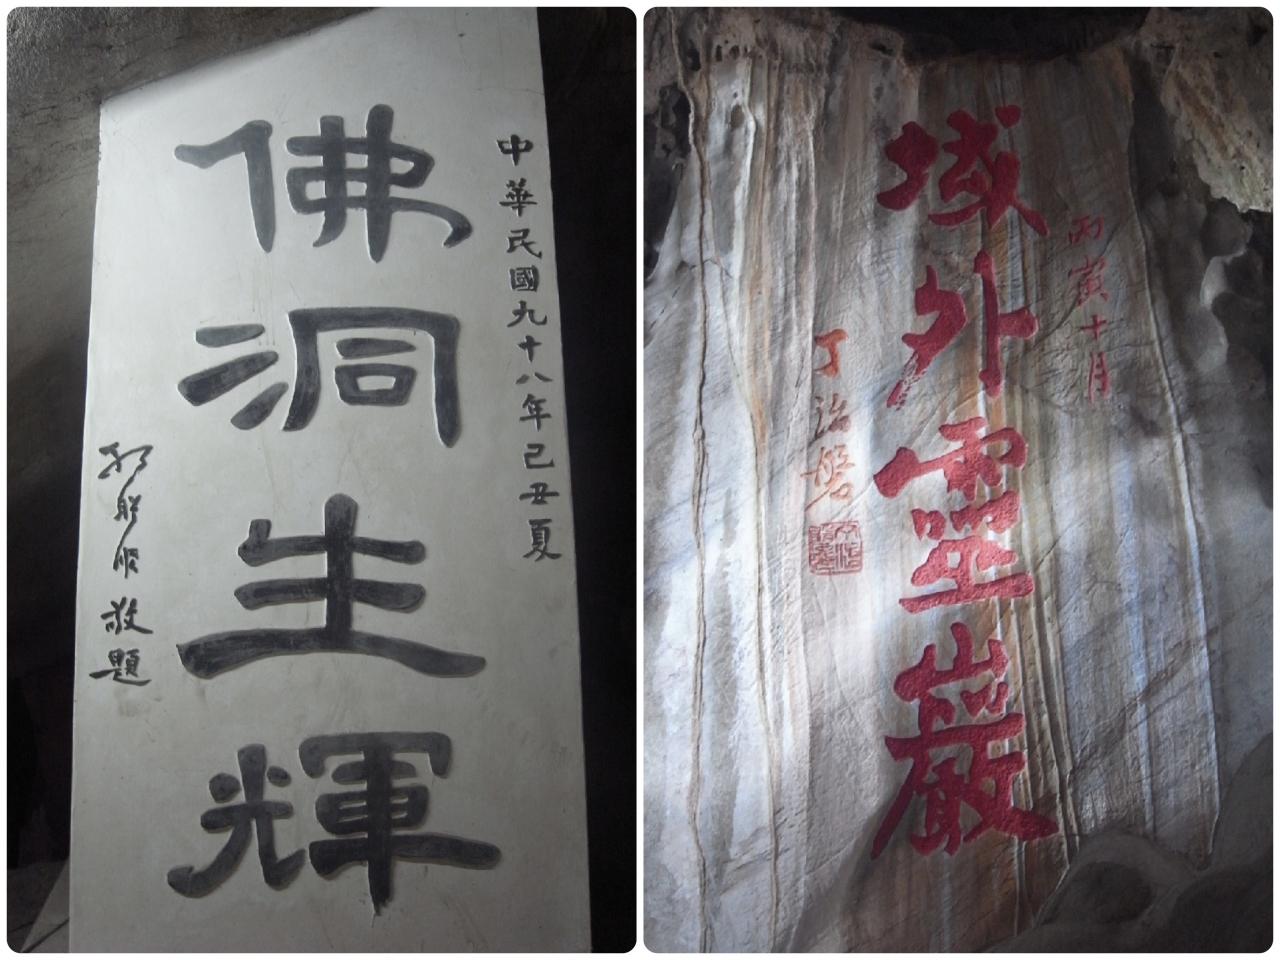 中華民國九十八年己丑夏
佛洞生輝
敬題
丙寅十月
域外靈巖
丁治磐